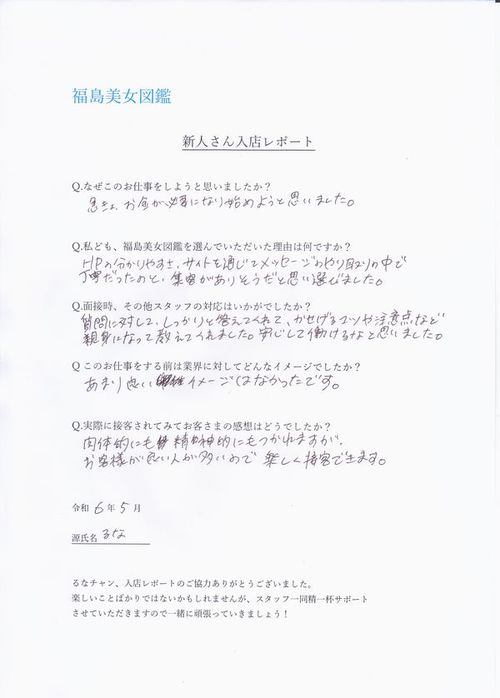 福島美女図鑑
新人さん入店レポート
Q.なぜこのお仕事をしようと思いましたか？
急きょ、お金が必要になり始めようと思いました。
Q.私ども、福島美女図鑑を選んでいただいた理由は何ですか？
HPの分かりやすさ、サイトを通じてメッセージのやり取りの中で
丁寧だったのと、集客がありそうだと思い選びました。
Q.面接時、その他スタッフの対応はいかがでしたか？
質問に対して、しっかりと答えてくれて、かせげるコツや注意点など
親身になって教えてくれました。安心して働けるなと思いました。
Q このお仕事をする前は業界に対してどんなイメージでしたか？
あまり良いイメージはなかったです。
Q.実際に接客されてみてお客さまの感想はどうでしたか？
肉体的にも精神的にもつかれますが、
お客様が良い人が多いので 楽しく接客できます。
令和 6 年 5 月
源氏名 るな
るなチャン、入店レポートのご協力ありがとうございました。
楽しいことばかりではないかもしれませんが、スタッフ一同精一杯サポート
させていただきますので一緒に頑張っていきましょう！